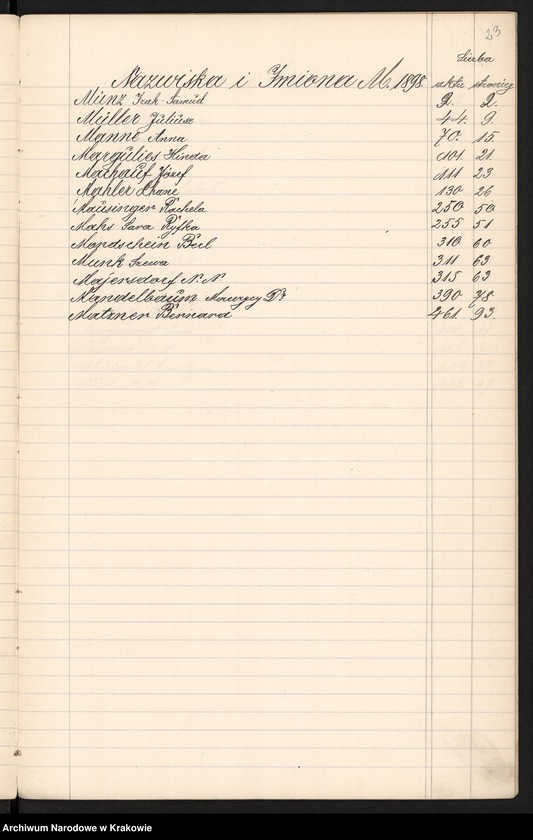 23
Liczba
Nazwiska i Imiona M. 1898. aktu stronicy
Münz Izak Samuel 2. 2.
Müller Juliusz 44. 9.
Manne Anna 70. 15.
Margulies Hinda 101. 21.
Machauf Józef 111 23
Mahler Chane 130 26
Mausinger Rachela 250. 50.
Maks Sara Ryfka 255 51
Mondschein Beil 310 60
Munk Szewa 311 63
Majersdorf N. N. 315 63
Mandelbaum Maurycy Dr 390 78
Matzner Bernard 461. 93.
Archiwum Narodowe w Krakowie